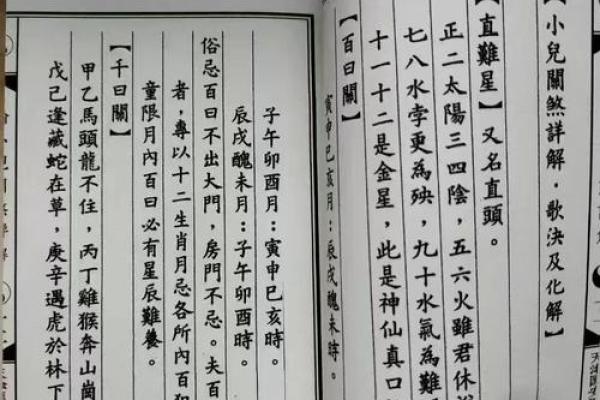 【小兒關煞詳解・歌決及化解】
【直難星】又名直頭。
正二太陽三四陰，五六火雖君休
七八水孛更為殃，九十水氣為難
十一十二是金星，此是神仙真口
【百曰關】
寅申巳亥月：辰戌醜未時。
子午卯酉月：寅申巳亥時。
辰戌醜未月：子午卯酉時。
俗忌百曰不出大門，房門不忌。夫百
者，專以十二生肖月忌各所內百曰
童限月內百曰必有星辰難養。
【千曰關】
甲乙馬頭龍不住，丙丁雞猴奔山崗
戊己逢藏蛇在草，庚辛遇虎於林下